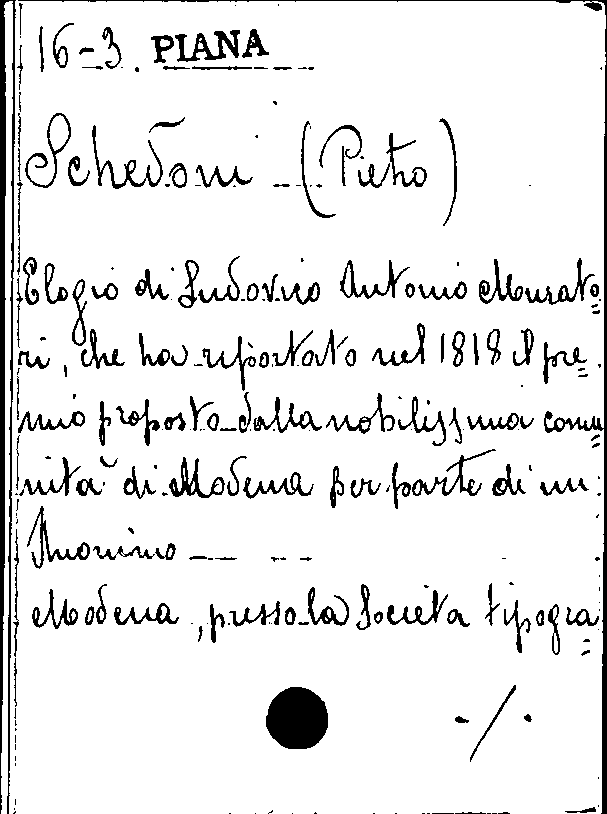 16-3. PIANA
Schedoni (Pietro)
Elogio di Ludovico Antonio Murato=
ri, che ha riportato nel 1818 il pre=
mio proposto dalla nobilissima comu=
nità di Modena per parte di un
Anonimo
Modena, presso la Società tipogra=
./.